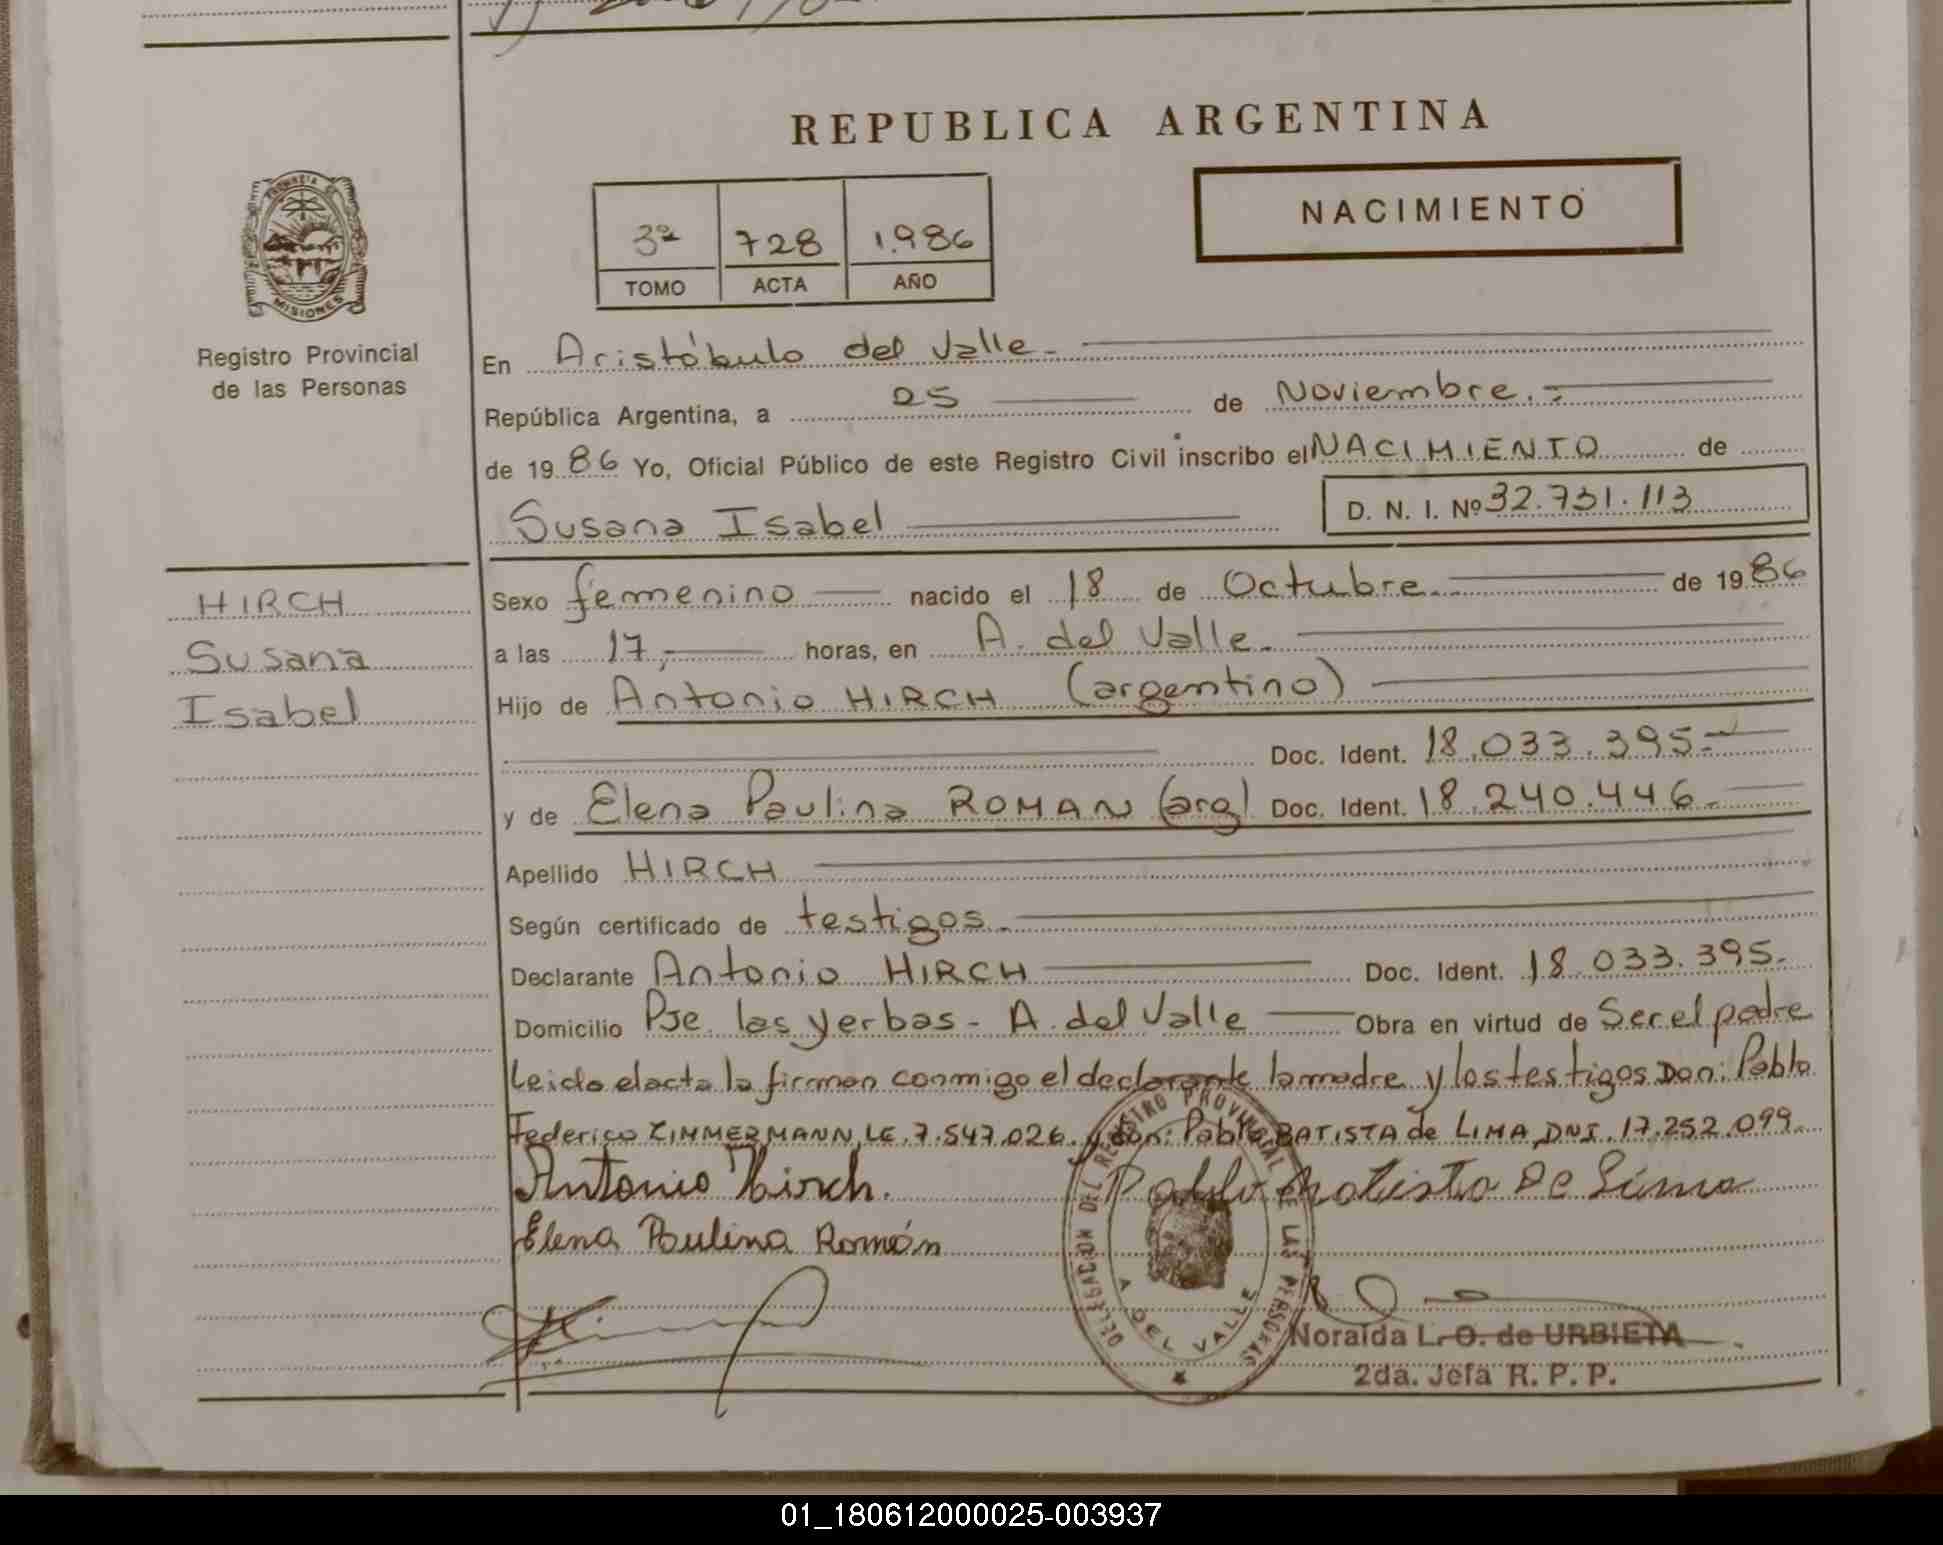 REPUBLICA ARGENTINA
NACIMIENTO
3º 728 1.986
TOMO ACTA AÑO
PROVINCIA DE MISIONES
Registro Provincial
de las Personas
En Aristóbulo del Valle.-
República Argentina, a 25 de Noviembre.-
de 1986 Yo, Oficial Público de este Registro Civil inscribo el NACIMIENTO de
Susana Isabel D. N. I. Nº 32.731.113
HIRCH
Susana
Isabel
Sexo femenino nacido el 18 de Octubre. de 1986
a las 17,- horas, en A. del Valle.
Hijo de Antonio HIRCH (argentino)
Doc. Ident. 18.033.395.-
y de Elena Paulina ROMAN (arg) Doc. Ident. 18.240.446.-
Apellido HIRCH
Según certificado de testigos.-
Declarante Antonio HIRCH Doc. Ident. 18.033.395.
Domicilio Pje. las yerbas - A. del Valle Obra en virtud de Ser el padre
Leida el acta la firman conmigo el declarante la madre y los testigos Don: Pablo
Federico ZIMMERMANN, LE. 7.547.026. y don: Pablo BATISTA de LIMA, DNI. 17.252.099.
Antonio Hirch. Pablo Batista De Lima
Elena Paulina Román
DELEGACION DEL REGISTRO PROVINCIAL DE LAS PERSONAS
A DEL VALLE
Noraida L. O. de URBIETA
2da. Jefa R. P. P.
01_180612000025-003937